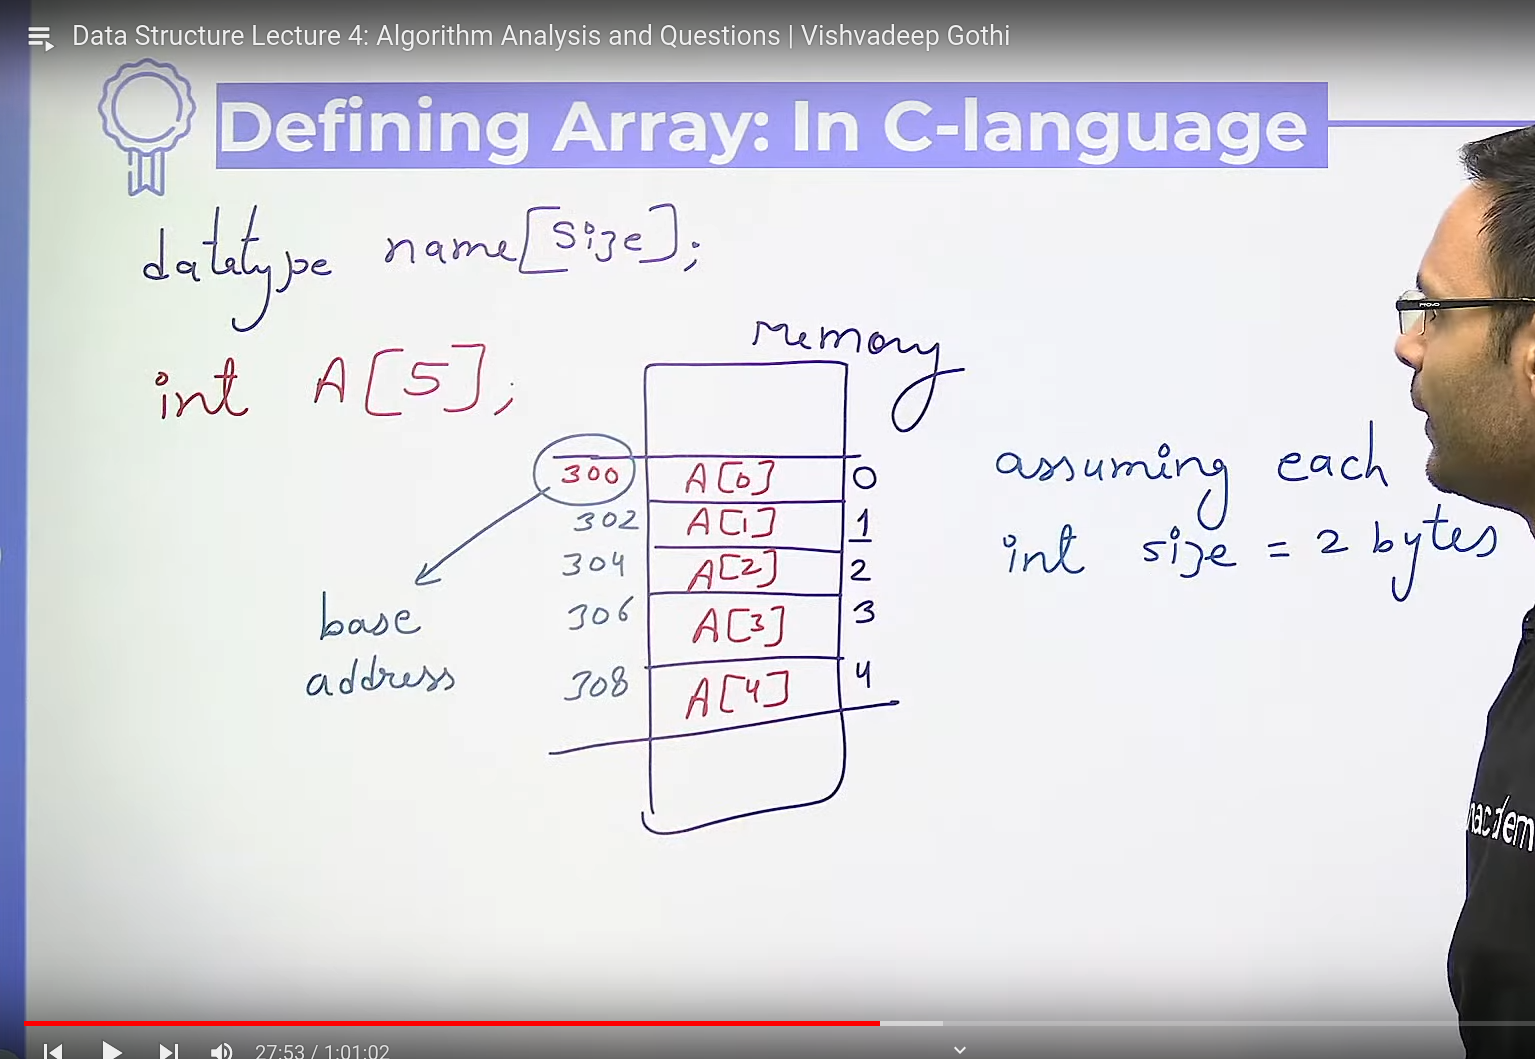 Data Structure Lecture 4: Algorithm Analysis and Questions | Vishvadeep Gothi
Defining Array: In C-language
datatype name[size];
int A[5];
memory
300 A[0] 0
302 A[1] 1
304 A[2] 2
306 A[3] 3
308 A[4] 4
base
address
assuming each
int size = 2 bytes
PROVO
nacadem
27:53 / 1:01:02